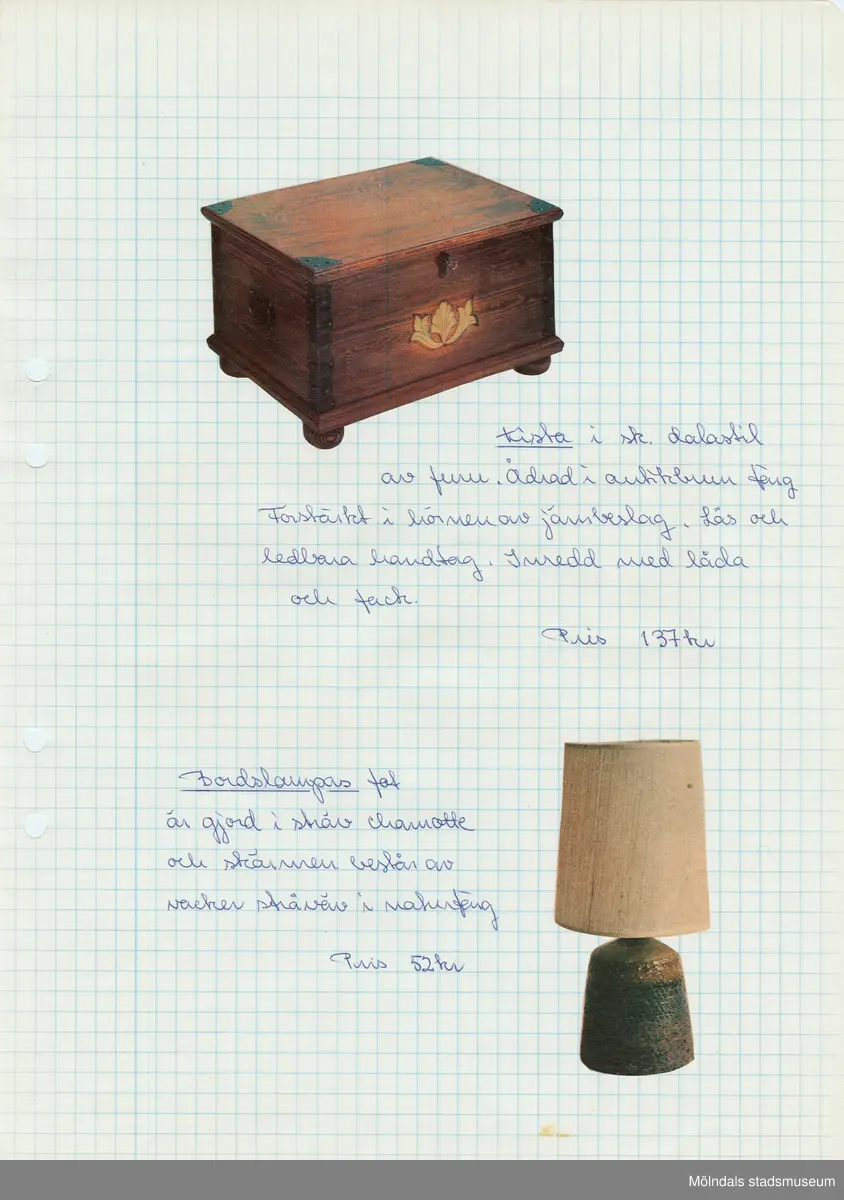 Kista i sk. dalastil
av furu. Ådrad i antikbrun färg
Förstärkt i hörnen av järnbeslag. Lås och
ledbara handtag. Inredd med låda
och fack.
Pris 137kr
Bordslampas fot
är gjord i sträv chamotte
och skärmen består av
vacker stråväv i naturfärg
Pris 52kr
Mölndals stadsmuseum